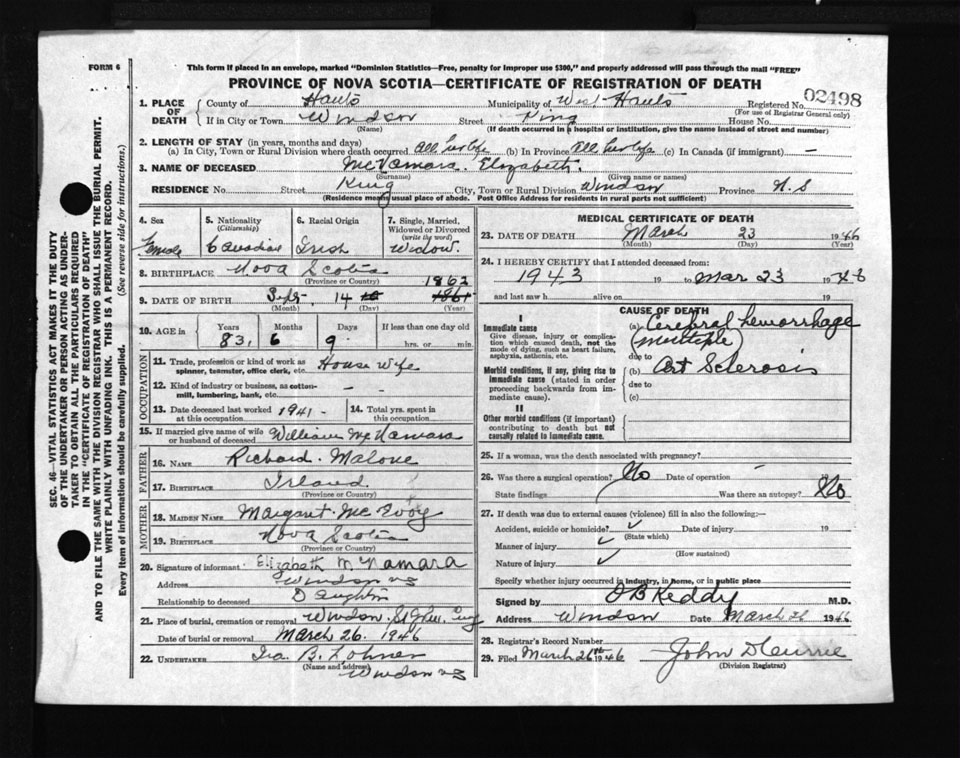 FORM 6
This form if placed in an envelope, marked "Dominion Statistics—Free, penalty for improper use $300," and properly addressed will pass through the mail "FREE"
PROVINCE OF NOVA SCOTIA—CERTIFICATE OF REGISTRATION OF DEATH
1. PLACE OF DEATH
County of Hants Municipality of West Hants Registered No. 02498
(For use of Registrar General only)
If in City or Town Windsor Street King House No.
(Name) (If death occurred in a hospital or institution, give the name instead of street and number)
2. LENGTH OF STAY (in years, months and days)
(a) In City, Town or Rural Division where death occurred All her life (b) In Province All her life (c) In Canada (if immigrant) —
3. NAME OF DECEASED McNamara, Elizabeth.
(Surname) (Given name or names)
RESIDENCE No. Street King City, Town or Rural Division Windsor Province N.S
(Residence means usual place of abode. Post Office Address for residents in rural parts not sufficient)
4. Sex
Female
5. Nationality
(Citizenship)
Canadian
6. Racial Origin
Irish
7. Single, Married, Widowed or Divorced
(write the word)
Widow.
8. BIRTHPLACE Nova Scotia
(Province or Country)
1862
9. DATE OF BIRTH Sept. 14 1861
(Month) (Day) (Year)
10. AGE in Years Months Days If less than one day old
83 6 9 hrs. or min.
OCCUPATION
11. Trade, profession or kind of work as spinner, teamster, office clerk, etc. House Wife
12. Kind of industry or business, as cotton-mill, lumbering, bank, etc. — —
13. Date deceased last worked at this occupation 1941 -
14. Total yrs. spent in this occupation
15. If married give name of wife or husband of deceased William McNamara
FATHER
16. NAME Richard. Malone
17. BIRTHPLACE Ireland
(Province or Country)
MOTHER
18. MAIDEN NAME Margaret McEvoy
19. BIRTHPLACE Nova Scotia
(Province or Country)
20. Signature of informant Elizabeth McNamara
Address Windsor NS
Relationship to deceased Daughter
21. Place of burial, cremation or removal Windsor. St
Date of burial or removal March 26. 1946
22. UNDERTAKER Ira B. Lohnes
(Name and address) Windsor NS
MEDICAL CERTIFICATE OF DEATH
23. DATE OF DEATH March 23 1946
(Month) (Day) (Year)
24. I HEREBY CERTIFY that I attended deceased from:
1943 19 to Mar 23 19
and last saw h alive on 19
CAUSE OF DEATH
I
Immediate cause
Give disease, injury or complication which caused death, not the mode of dying, such as heart failure, asphyxia, asthenia, etc.
(a) Cerebral hemorrhage (multiple)
due to
Morbid conditions, if any, giving rise to immediate cause (stated in order proceeding backwards from immediate cause).
(b) Art Sclerosis
due to
(c)
II
Other morbid conditions (if important) contributing to death but not causally related to immediate cause.
25. If a woman, was the death associated with pregnancy?
26. Was there a surgical operation? No Date of operation
State findings Was there an autopsy? No
27. If death was due to external causes (violence) fill in also the following:—
Accident, suicide or homicide? Date of injury 19
(State which)
Manner of injury
(How sustained)
Nature of injury
Specify whether injury occurred in industry, in home, or in public place
Signed by D B Keddy M.D.
Address Windsor Date March 26 1946
28. Registrar's Record Number
29. Filed March 26th 1946 John D Currie
(Division Registrar)
SEC. 46—VITAL STATISTICS ACT MAKES IT THE DUTY
OF THE UNDERTAKER OR PERSON ACTING AS UNDER-
TAKER TO OBTAIN ALL THE PARTICULARS REQUIRED
IN THE "CERTIFICATE OF REGISTRATION OF DEATH"
AND TO FILE THE SAME WITH THE DIVISION REGISTRAR WHO SHALL ISSUE THE BURIAL PERMIT.
WRITE PLAINLY WITH UNFADING INK. THIS IS A PERMANENT RECORD.
Every item of information should be carefully supplied. (See reverse side for instructions.)